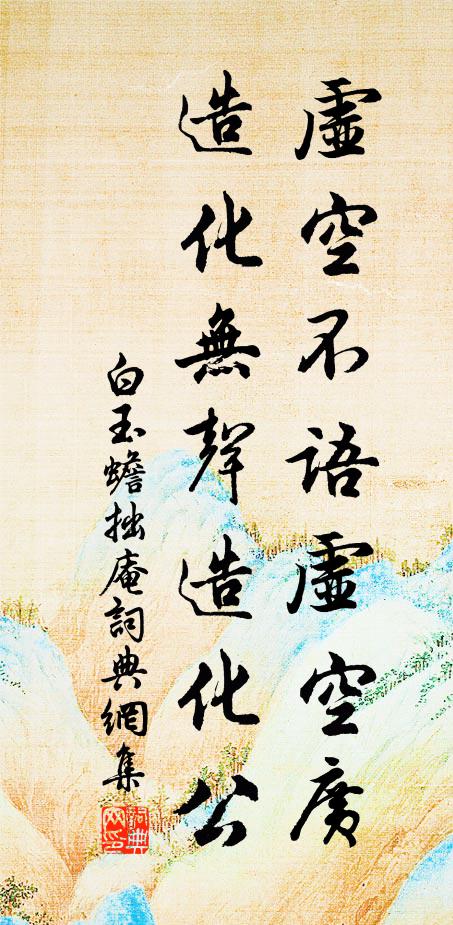 虛空不語虛空廣
造化無聲造化公
白玉蟾拙庵詞典網集
詞典網印